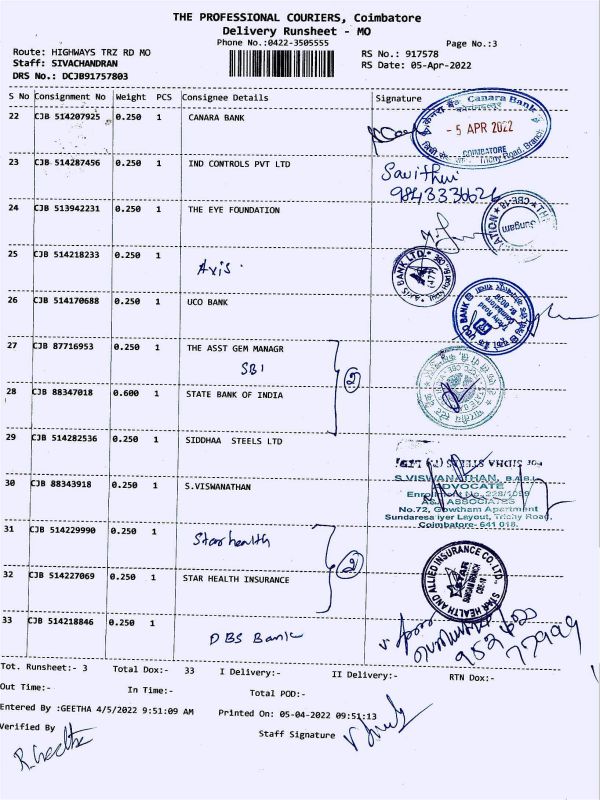 THE PROFESSIONAL COURIERS, Coimbatore
Delivery Runsheet - MO
Phone No.:0422-3505555
Page No.:3
Route: HIGHWAYS TRZ RD MO
RS No.: 917578
Staff: SIVACHANDRAN
RS Date: 05-Apr-2022
DRS No.: DCJB91757803
S No Consignment No Weight PCS Consignee Details Signature
22 CJB 514207925 0.250 1 CANARA BANK
Canara Bank
- 5 APR 2022
COIMBATORE
Trichy Road, Branch
23 CJB 514287456 0.250 1 IND CONTROLS PVT LTD
Savithri
24 CJB 513942231 0.250 1 THE EYE FOUNDATION
CBE-18
Sungam
25 CJB 514218233 0.250 1 Axis.
AXIS BANK LTD.
26 CJB 514170688 0.250 1 UCO BANK
UCO BANK
27 CJB 87716953 0.250 1 THE ASST GEM MANAGR
SBI
2
28 CJB 88347018 0.600 1 STATE BANK OF INDIA
29 CJB 514282536 0.250 1 SIDDHAA STEELS LTD
For SIDHA STEELS (P) LTD.
30 CJB 88343918 0.250 1 S.VISWANATHAN
S.VISWANATHAN, B.A.B.L.
ADVOCATE
ASSOCIATES
No.72, Gowtham Apartment
Sundaresa iyer Layout, Trichy Road,
Coimbatore- 641 018.
31 CJB 514229990 0.250 1 Star health
2
32 CJB 514227069 0.250 1 STAR HEALTH INSURANCE
STAR HEALTH AND ALLIED INSURANCE CO. LTD.
STAR
33 CJB 514218846 0.250 1 DBS Bank
Tot. Runsheet:- 3 Total Dox:- 33 I Delivery:- II Delivery:- RTN Dox:-
Out Time:- In Time:- Total POD:-
Entered By :GEETHA 4/5/2022 9:51:09 AM Printed On: 05-04-2022 09:51:13
Verified By
Staff Signature
R. Geetha